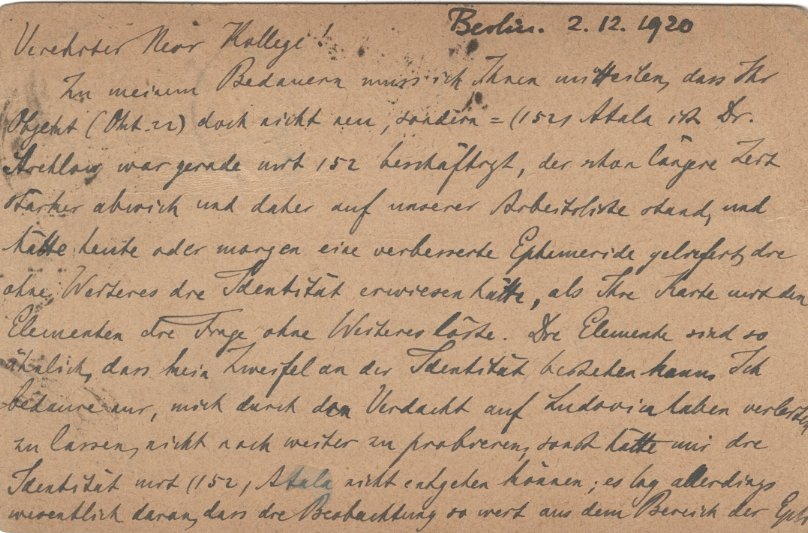 Berlin. 2.12.1920
Verehrter Herr Kollege!
Zu meinem Bedauern muss ich Ihnen mitteilen, dass Ihr
Objekt (Okt. 22) doch nicht neu, sondern = (152) Atala ist. Dr.
war gerade mit 152 beschäftigt, der schon längere Zeit
stärker abwich und daher auf unserer Arbeitsliste stand, und
hätte heute oder morgen eine verbesserte Ephemeride geliefert, die
ohne Weiteres die Identität erwiesen hätte, als Ihre Karte mit den
Elementen die Frage ohne Weiteres löste. Die Elemente sind so
ähnlich, dass kein Zweifel an der Identität bestehen kann. Ich
bedaure nur, mich durch den Verdacht auf Ludovica haben verleiten
zu lassen, nicht noch weiter zu probieren, sonst hätte mir die
Identität mit (152) Atala nicht entgehen können; es lag allerdings
wesentlich daran, dass die Beobachtung so weit aus dem Bereich der